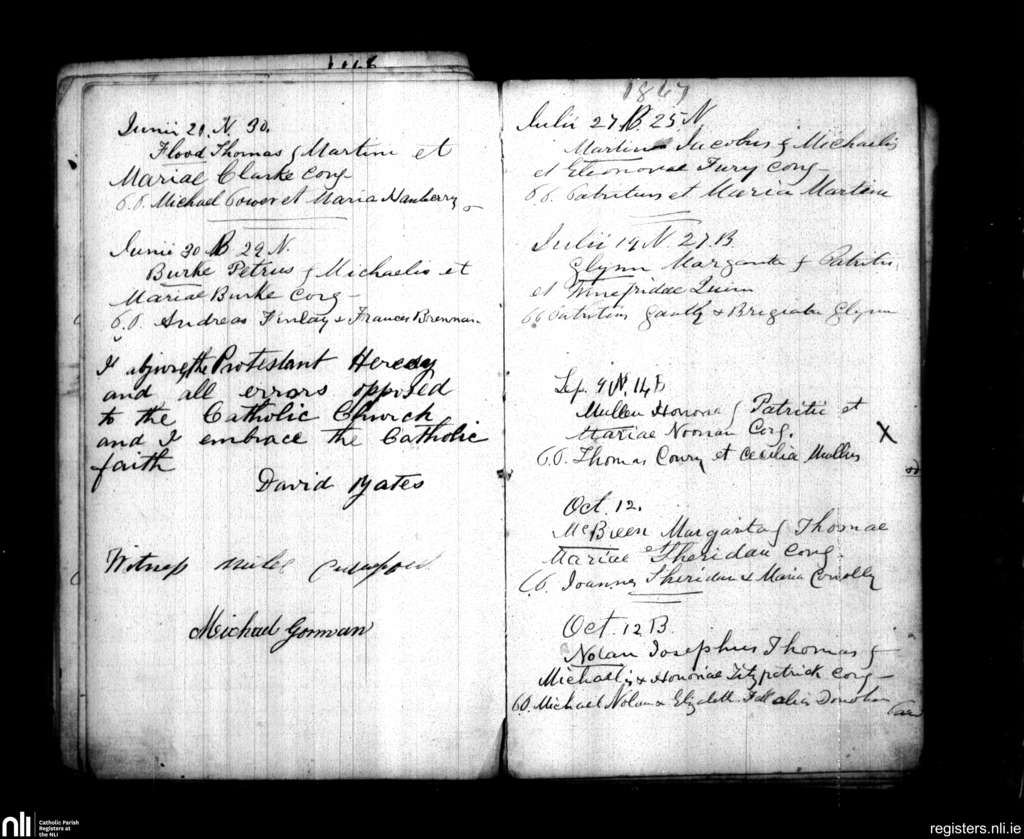 Junii 21. N. 30.
Flood Thomas f Martini et
Mariae Clarke Conj
P.P. Michael Power et Maria Hanberry
Junii 30 B 29 N.
Burke Petrus f Michaelis et
Mariae Burke Conj
P.P. Andreas Finlay & Frances Brennan
I abjure the Protestant Heresy
and all errors opposed
to the Catholic Church
and I embrace the Catholic
faith
David Yates
Witness
Michael Gorman
1867
Julii 27 B. 25 N.
Martin Jacobus f Michaelis
et Eleonorae Fury Conj
P.P. Patritius et Maria Martin
Julii 19 N. 27 B.
Glynn Margarita f Patritii
et Winefridae Quinn
PP Patritius & Brigida Glynn
Sep. 9 N. 14 B
Mullen Honoria f Patritii et
Mariae Noonan Conj.
P.P. Thomas et Cecilia Mullins
X
Oct. 12.
Margarita f Thomae
Mariae et Sheridan Conj.
P.P. Joannes Sheridan & Maria Connolly
Oct. 12 B.
Nolan Josephus Thomas f
Michaelis & Honoriae Fitzpatrick Conj
P.P. Michael Nolan & Elizabeth alias
nli
Catholic Parish
Registers at
the NLI
registers.nli.ie